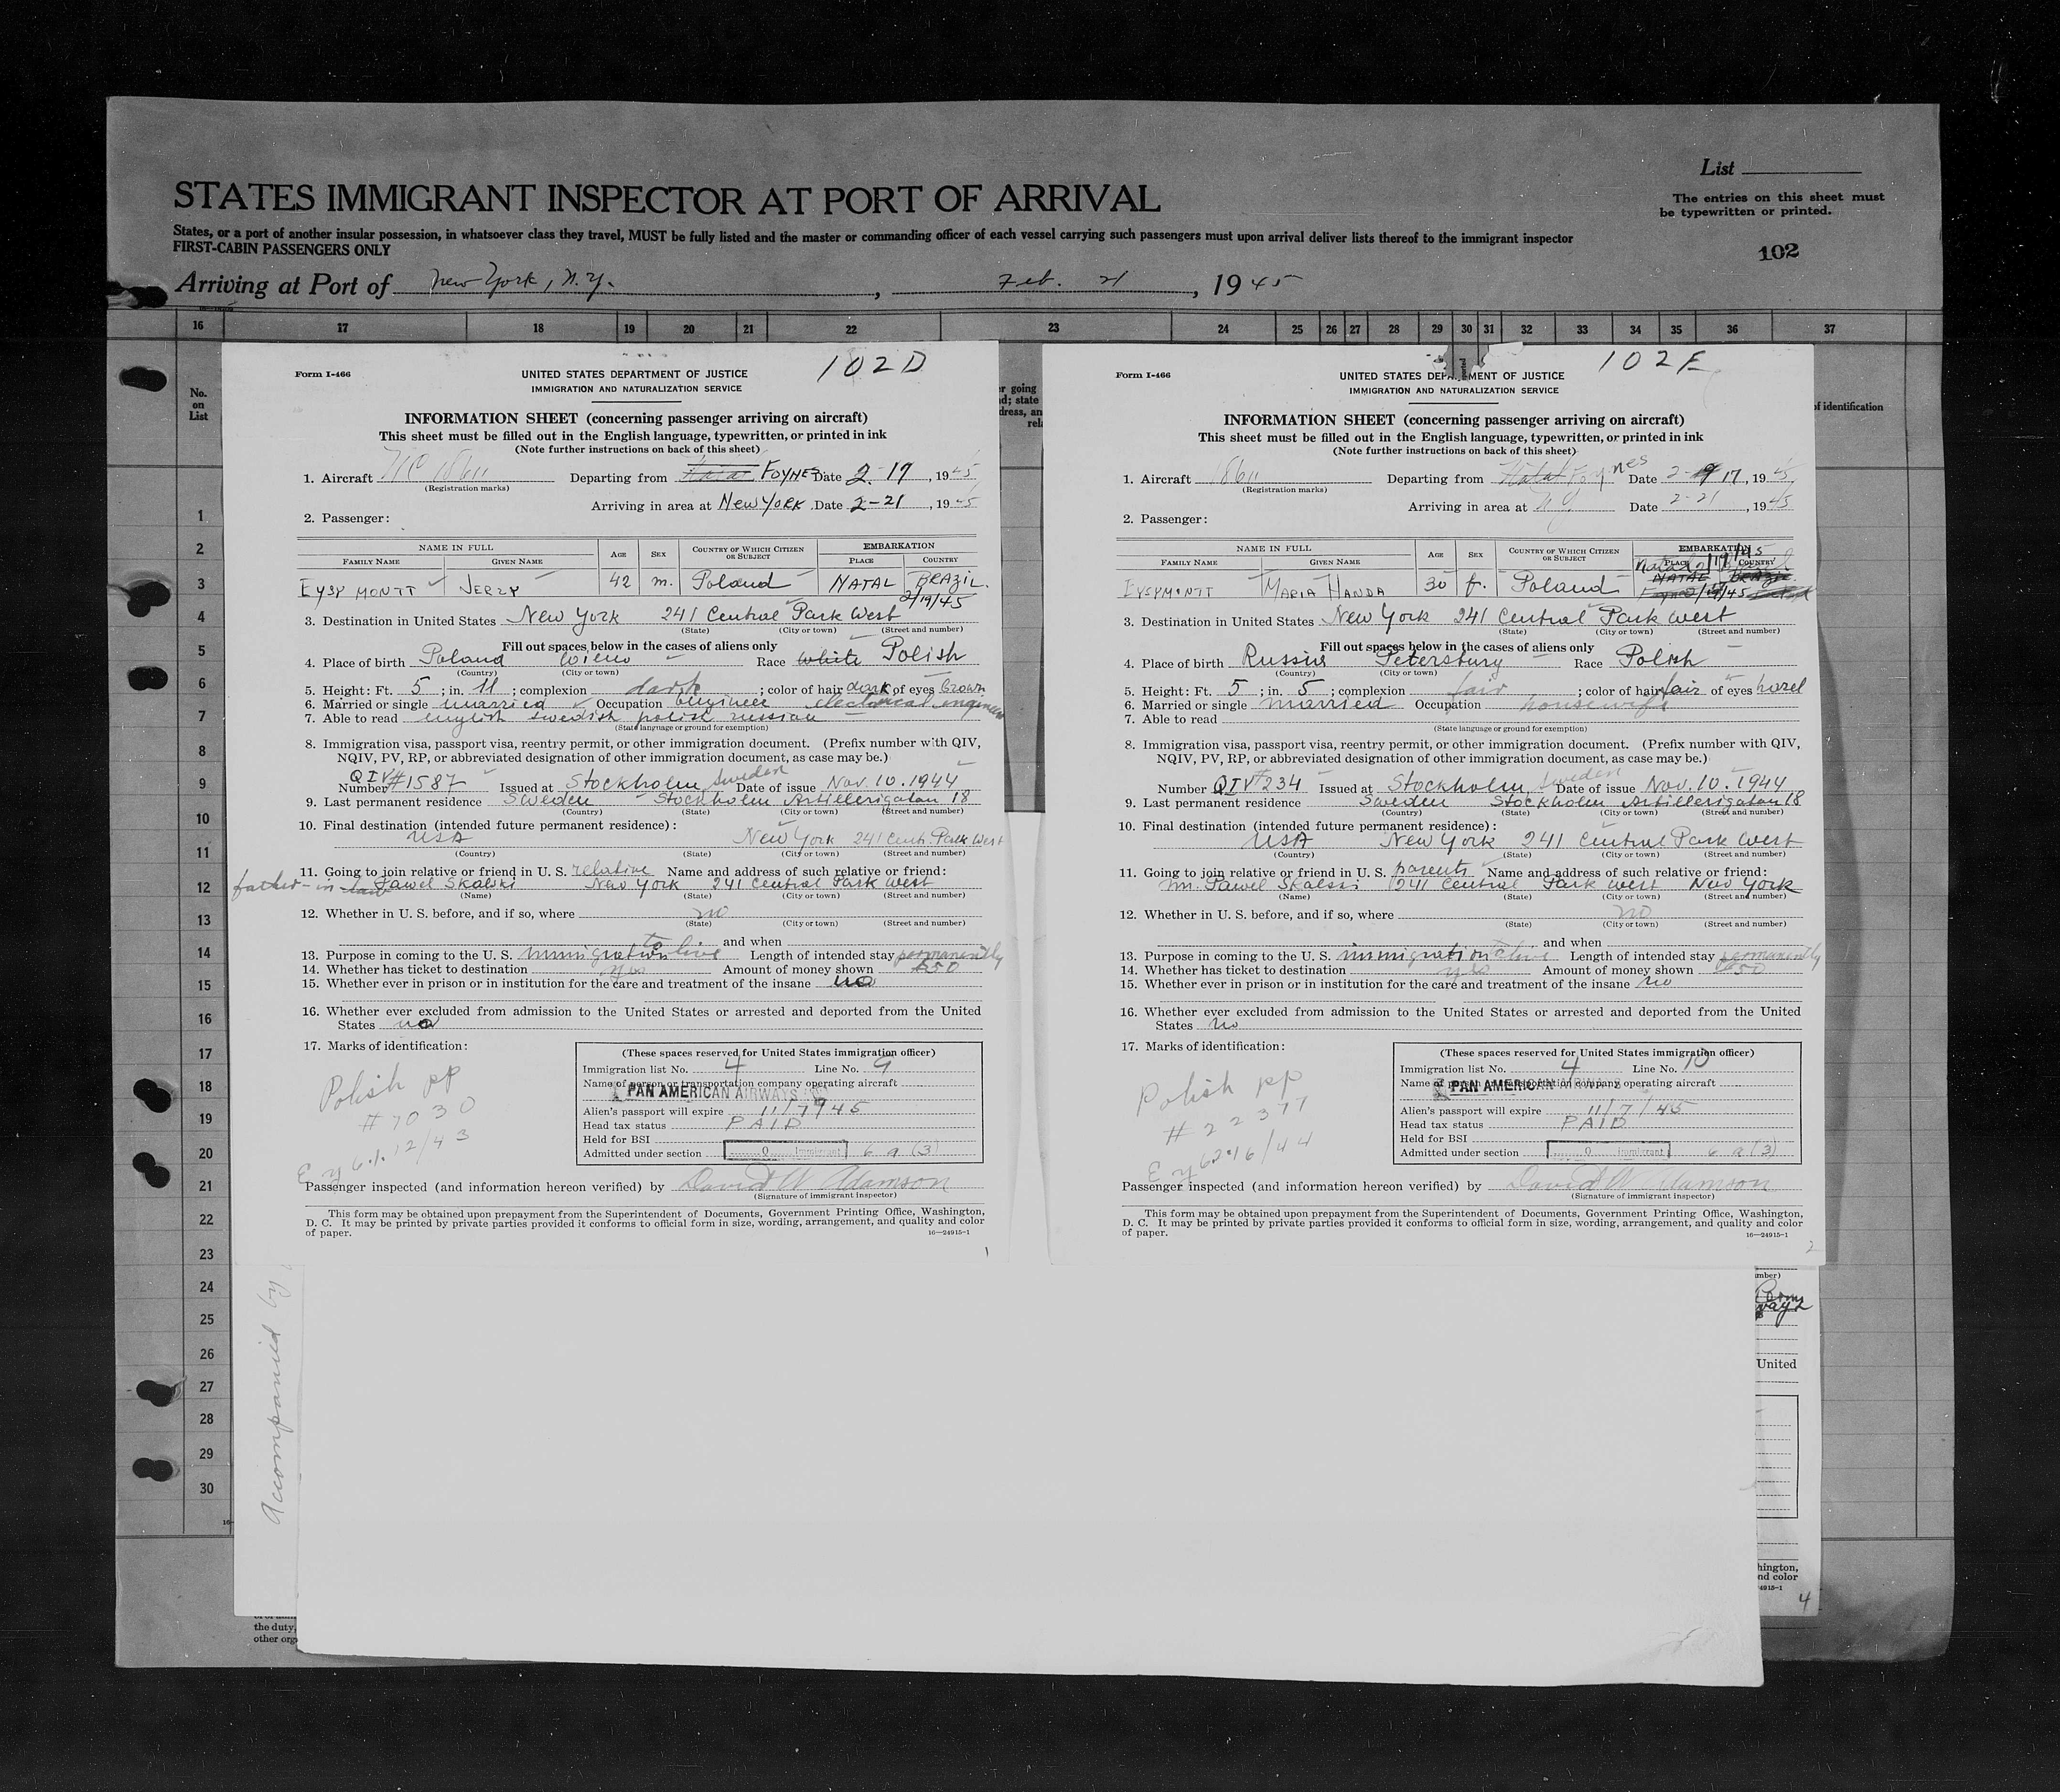 List
STATES IMMIGRANT INSPECTOR AT PORT OF ARRIVAL
The entries on this sheet must
be typewritten or printed.
States, or a port of another insular possession, in whatsoever class they travel, MUST be fully listed and the master or commanding officer of each vessel carrying such passengers must upon arrival deliver lists thereof to the immigrant inspector
FIRST-CABIN PASSENGERS ONLY
102
Arriving at Port of New York, N.Y. , Feb. 21 , 1945
16 17 18 19 20 21 22 23 24 25 26 27 28 29 30 31 32 33 34 35 36 37
No.
on
List
of identification
1
2
3
4
5
6
7
8
9
10
11
12
13
14
15
16
17
18
19
20
21
22
23
24
25
26
27
28
29
30
102D
Form I-466
UNITED STATES DEPARTMENT OF JUSTICE
IMMIGRATION AND NATURALIZATION SERVICE
INFORMATION SHEET (concerning passenger arriving on aircraft)
This sheet must be filled out in the English language, typewritten, or printed in ink
(Note further instructions on back of this sheet)
1. Aircraft NC 18611 Departing from Natal FOYNES Date 2-17, 1945
(Registration marks)
Arriving in area at New York Date 2-21, 1945
2. Passenger:
NAME IN FULL AGE SEX COUNTRY OF WHICH CITIZEN OR SUBJECT EMBARKATION
FAMILY NAME GIVEN NAME PLACE COUNTRY
EYSYMONTT JERZY 42 m. Poland NATAL BRAZIL.
2/19/45
3. Destination in United States New York 241 Central Park West
(State) (City or town) (Street and number)
Fill out spaces below in the cases of aliens only
4. Place of birth Poland Wilno Race white Polish
(Country) (City or town)
5. Height: Ft. 5; in. 11; complexion dark; color of hair dark of eyes brown
6. Married or single married Occupation engineer electrical engineer
7. Able to read english swedish polish russian
(State language or ground for exemption)
8. Immigration visa, passport visa, reentry permit, or other immigration document. (Prefix number with QIV,
NQIV, PV, RP, or abbreviated designation of other immigration document, as case may be.)
Number QIV #1587 Issued at Stockholm Sweden Date of issue Nov. 10. 1944
9. Last permanent residence Sweden Stockholm Artillerigatan 18
(Country) (State) (City or town) (Street and number)
10. Final destination (intended future permanent residence):
USA New York 241 Centr. Park West
(Country) (State) (City or town) (Street and number)
11. Going to join relative or friend in U. S. relative Name and address of such relative or friend:
father-in-law Pawel Skalski New York 241 Central Park West
(Name) (State) (City or town) (Street and number)
12. Whether in U. S. before, and if so, where no
(State) (City or town) (Street and number)
and when
13. Purpose in coming to the U. S. immigration to live Length of intended stay permanently
14. Whether has ticket to destination yes Amount of money shown $50
15. Whether ever in prison or in institution for the care and treatment of the insane no
16. Whether ever excluded from admission to the United States or arrested and deported from the United
States no
17. Marks of identification:
Polish pp
#7030
(These spaces reserved for United States immigration officer)
Immigration list No. 4 Line No. 9
Name of person or transportation company operating aircraft
PAN AMERICAN AIRWAYS INC
Alien's passport will expire 11/7/45
Head tax status PAID
Held for BSI
Admitted under section Immigrant 6 a (3)
Passenger inspected (and information hereon verified) by David W Adamson
(Signature of immigrant inspector)
This form may be obtained upon prepayment from the Superintendent of Documents, Government Printing Office, Washington,
D. C. It may be printed by private parties provided it conforms to official form in size, wording, arrangement, and quality and color
of paper.
16—24915-1
1
102E
Form I-466
UNITED STATES DEPARTMENT OF JUSTICE
IMMIGRATION AND NATURALIZATION SERVICE
INFORMATION SHEET (concerning passenger arriving on aircraft)
This sheet must be filled out in the English language, typewritten, or printed in ink
(Note further instructions on back of this sheet)
1. Aircraft 18611 Departing from Natal Foynes Date 2-17, 1945
(Registration marks)
Arriving in area at NY Date 2-21, 1945
2. Passenger:
NAME IN FULL AGE SEX COUNTRY OF WHICH CITIZEN OR SUBJECT EMBARKATION
FAMILY NAME GIVEN NAME PLACE COUNTRY
EYSYMONTT MARIA HANDA 30 f. Poland NATAL BRAZIL
3. Destination in United States New York 241 Central Park West
(State) (City or town) (Street and number)
Fill out spaces below in the cases of aliens only
4. Place of birth Russia Petersburg Race Polish
(Country) (City or town)
5. Height: Ft. 5; in. 5; complexion fair; color of hair fair of eyes hazel
6. Married or single married Occupation housewife
7. Able to read
(State language or ground for exemption)
8. Immigration visa, passport visa, reentry permit, or other immigration document. (Prefix number with QIV,
NQIV, PV, RP, or abbreviated designation of other immigration document, as case may be.)
Number QIV #234 Issued at Stockholm Sweden Date of issue Nov. 10. 1944
9. Last permanent residence Sweden Stockholm Artillerigatan 18
(Country) (State) (City or town) (Street and number)
10. Final destination (intended future permanent residence):
USA New York 241 Central Park West
(Country) (State) (City or town) (Street and number)
11. Going to join relative or friend in U. S. parents Name and address of such relative or friend:
Mr. Pawel Skalski 241 Central Park West New York
(Name) (State) (City or town) (Street and number)
12. Whether in U. S. before, and if so, where no
(State) (City or town) (Street and number)
and when
13. Purpose in coming to the U. S. immigration to live Length of intended stay permanently
14. Whether has ticket to destination yes Amount of money shown $50
15. Whether ever in prison or in institution for the care and treatment of the insane no
16. Whether ever excluded from admission to the United States or arrested and deported from the United
States no
17. Marks of identification:
Polish pp
#22377
(These spaces reserved for United States immigration officer)
Immigration list No. 4 Line No. 10
Name of person or transportation company operating aircraft
PAN AMERICAN AIRWAYS
Alien's passport will expire 11/7/45
Head tax status PAID
Held for BSI
Admitted under section Immigrant 6 a (3)
Passenger inspected (and information hereon verified) by David W Adamson
(Signature of immigrant inspector)
This form may be obtained upon prepayment from the Superintendent of Documents, Government Printing Office, Washington,
D. C. It may be printed by private parties provided it conforms to official form in size, wording, arrangement, and quality and color
of paper.
16—24915-1
2
Accompanied by
United
4
the duty,